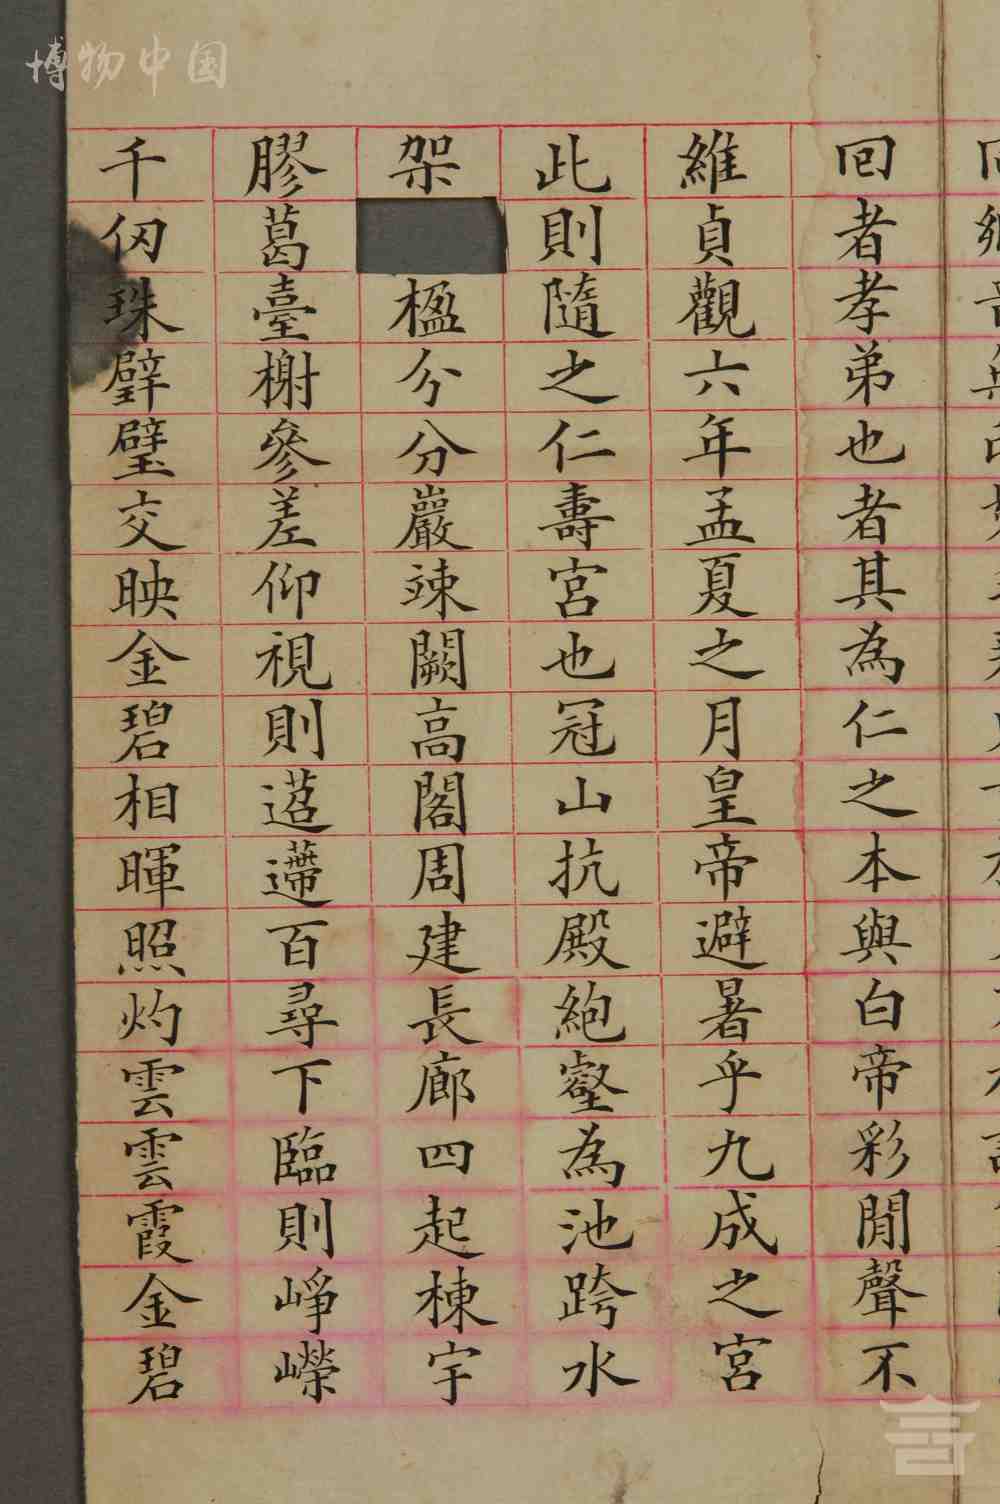 博物中国
回者孝弟也者其為仁之本與白帝彩閒聲不
維貞觀六年孟夏之月皇帝避暑乎九成之宮
此則隨之仁壽宮也冠山抗殿絕壑為池跨水
架楹分分巖竦闕高閣周建長廊四起棟宇
膠葛臺榭參差仰視則迢遰百尋下臨則崢嶸
千仞珠壁璧交映金碧相暉照灼雲雲霞金碧